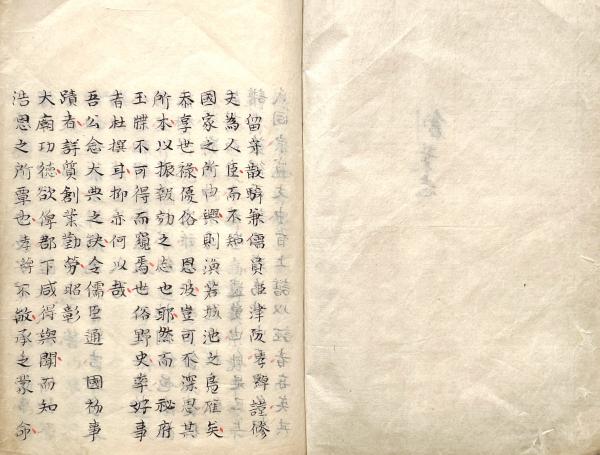 留守散騎兼儒員臣津阪孝綽謹修
夫為人臣而不知
國家之所由興則演若城池之鳥雁矣
忝享世祿優俗恩波豈可不深思其
所本以振報効之志也耶然而秘府
玉牒不可得而窺焉也俗野史率好事
者杜撰耳抑亦何以哉
吾公念大典之訣令儒臣通國初事
蹟者詳質創業勤勞昭彰
大廟功德欲俾郡下咸得與聞而知
浩恩之所覃也孝綽不敏承之蒙命